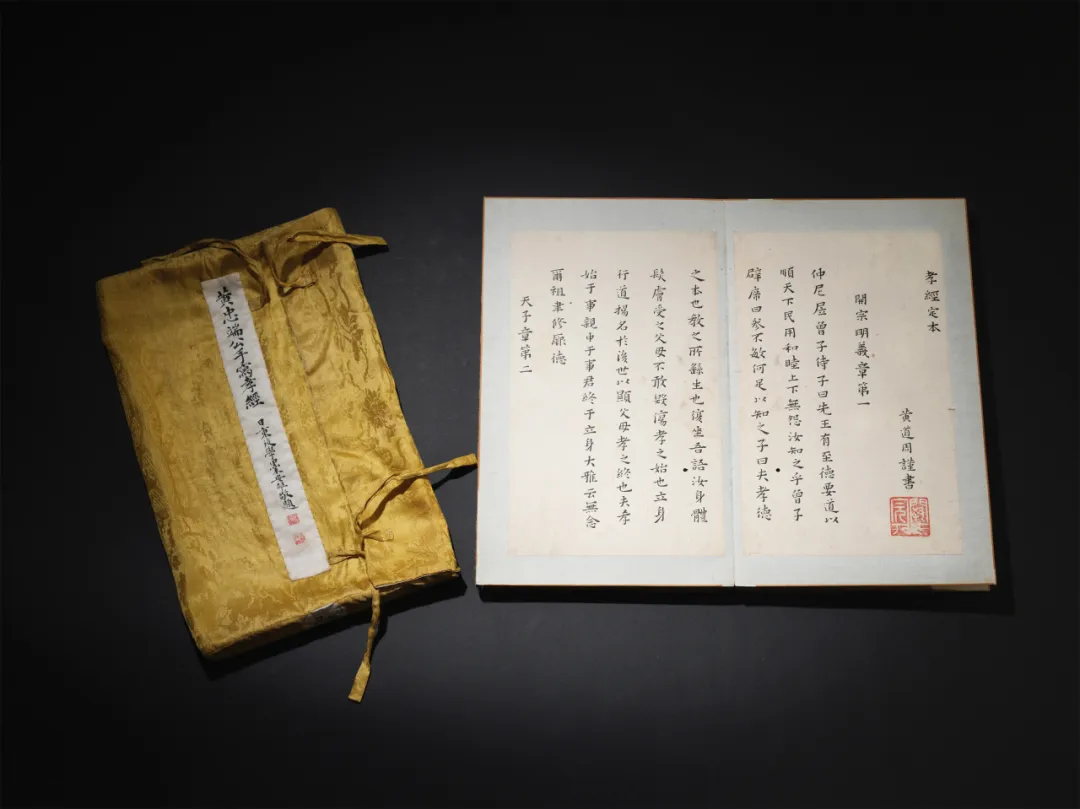 黄忠端公手寫孝經
孝經定本
黄道周謹書
開宗明義章第一
仲尼居曾子侍子曰先王有至德要道以
順天下民用和睦上下無怨汝知之乎曾子
辟席曰參不敏何足以知之子曰夫孝德
之本也教之所繇生也復坐吾語汝身體
髮膚受之父母不敢毀傷孝之始也立身
行道揚名於後世以顯父母孝之終也夫孝
始于事親中于事君終于立身大雅云無念
爾祖聿修厥德
天子章第二